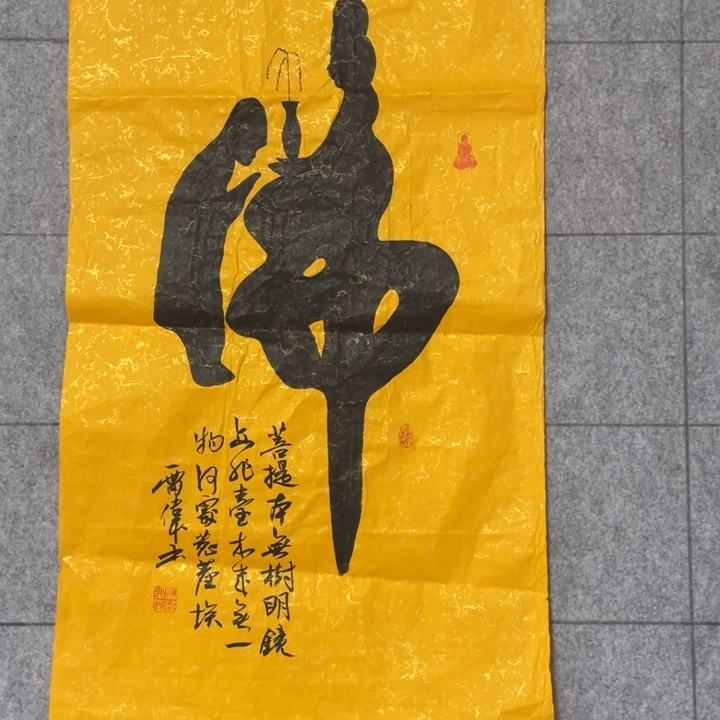 佛
菩提本無樹明鏡
亦非臺本來無一
物何處惹塵埃